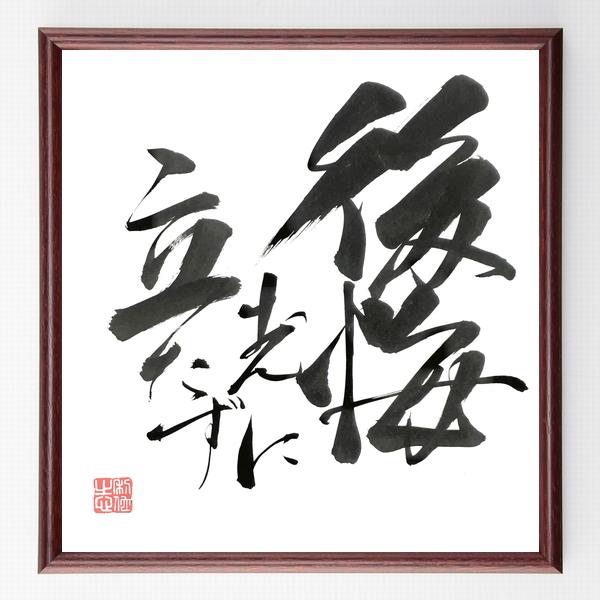 後悔
先に
立たず